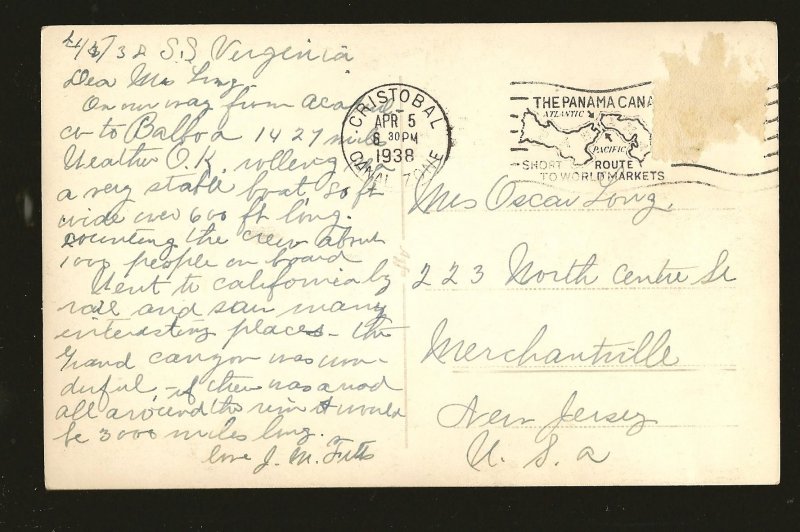 4/3/38 S.S Verginia
Dear Mrs Long
On our way from Acapul
co to Balboa 1427 miles
Weather O.K. rolling
a very stable boat, 80 ft
wide over 600 ft long.
counting the crew about
1000 people on board
Went to california by
rail and saw many
enteresting places - the
Grand canyon was won-
derful - if there was a road
all around the rim it would
be 3000 miles long.
love J. M.
CRISTOBAL
APR 5
8 30 PM
1938
CANAL ZONE
THE PANAMA CANA
ATLANTIC
PACIFIC
SHORT ROUTE
TO WORLD MARKETS
Mrs Oscar Long,
223 North Centre St
Merchantville
New Jersey
U. S. a